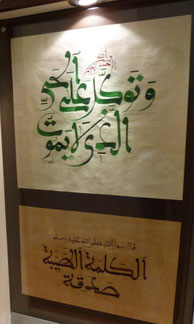 وتوكل على الحي
الذي لا يموت
قال رسول الله صلى الله عليه وسلم
الكلمة الطيبة
صدقة